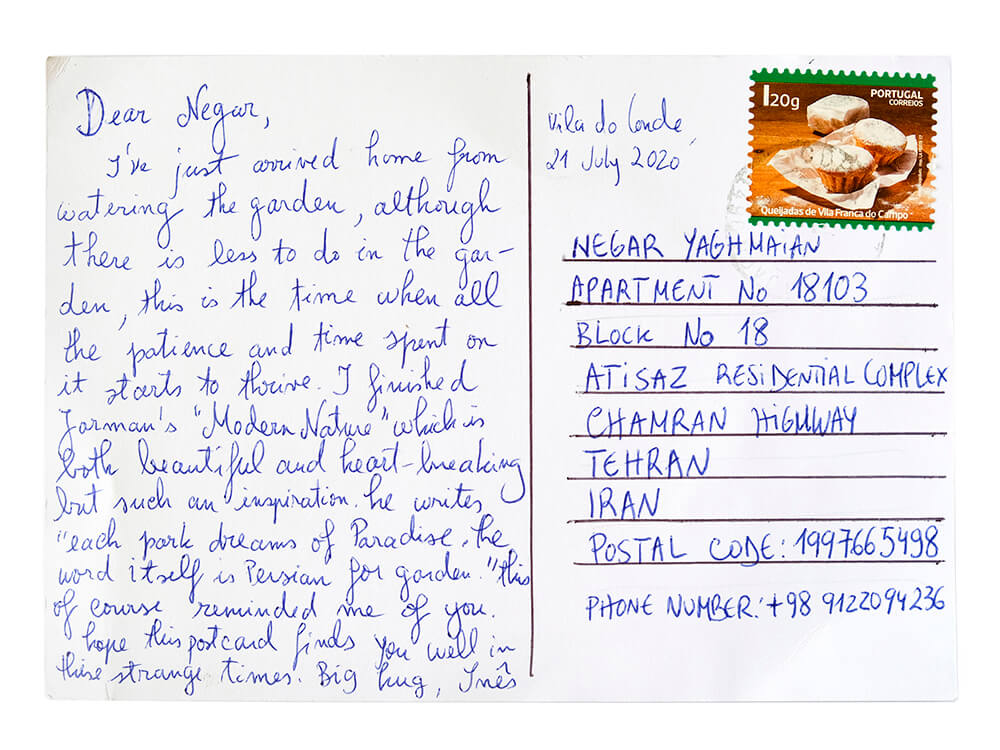 Dear Negar,
I've just arrived home from
watering the garden, although
there is less to do in the gar-
den, this is the time when all
the patience and time spent on
it starts to thrive. I finished
Jarman's "Modern Nature" which is
both beautiful and heart-breaking
but such an inspiration. he writes
"each park dreams of Paradise, the
word itself is Persian for garden." this
of course reminded me of you.
hope this postcard finds you well in
these strange times. Big hug, Inês
Vila do Conde,
21 July 2020
I20g
PORTUGAL
CORREIOS
Queijadas de Vila Franca do Campo
NEGAR YAGHMAIAN
APARTMENT No 18103
BLOCK No 18
ATISAZ RESIDENTIAL COMPLEX
CHAMRAN HIGHWAY
TEHRAN
IRAN
POSTAL CODE: 1997665498
PHONE NUMBER: +98 9122094236